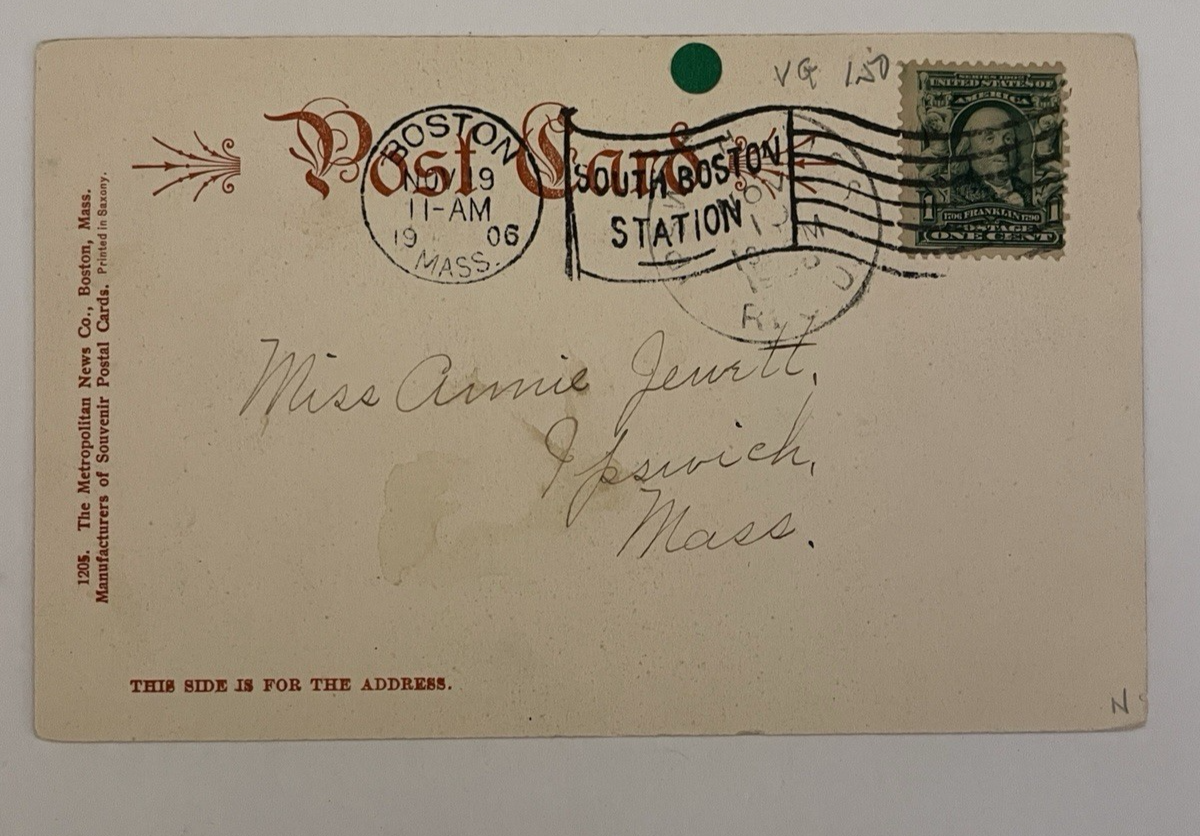 VG 1.50
Post Card
BOSTON
NOV 19
11-AM
19 06
MASS.
SOUTH BOSTON
STATION
SERIES 1902
UNITED STATES OF
AMERICA
1 1706 FRANKLIN 1790 1
POSTAGE
ONE CENT
NOV
REC'D
1205. The Metropolitan News Co., Boston, Mass.
Manufacturers of Souvenir Postal Cards. Printed in Saxony.
Miss Annie Jewett,
Ipswich,
Mass.
THIS SIDE IS FOR THE ADDRESS.
N